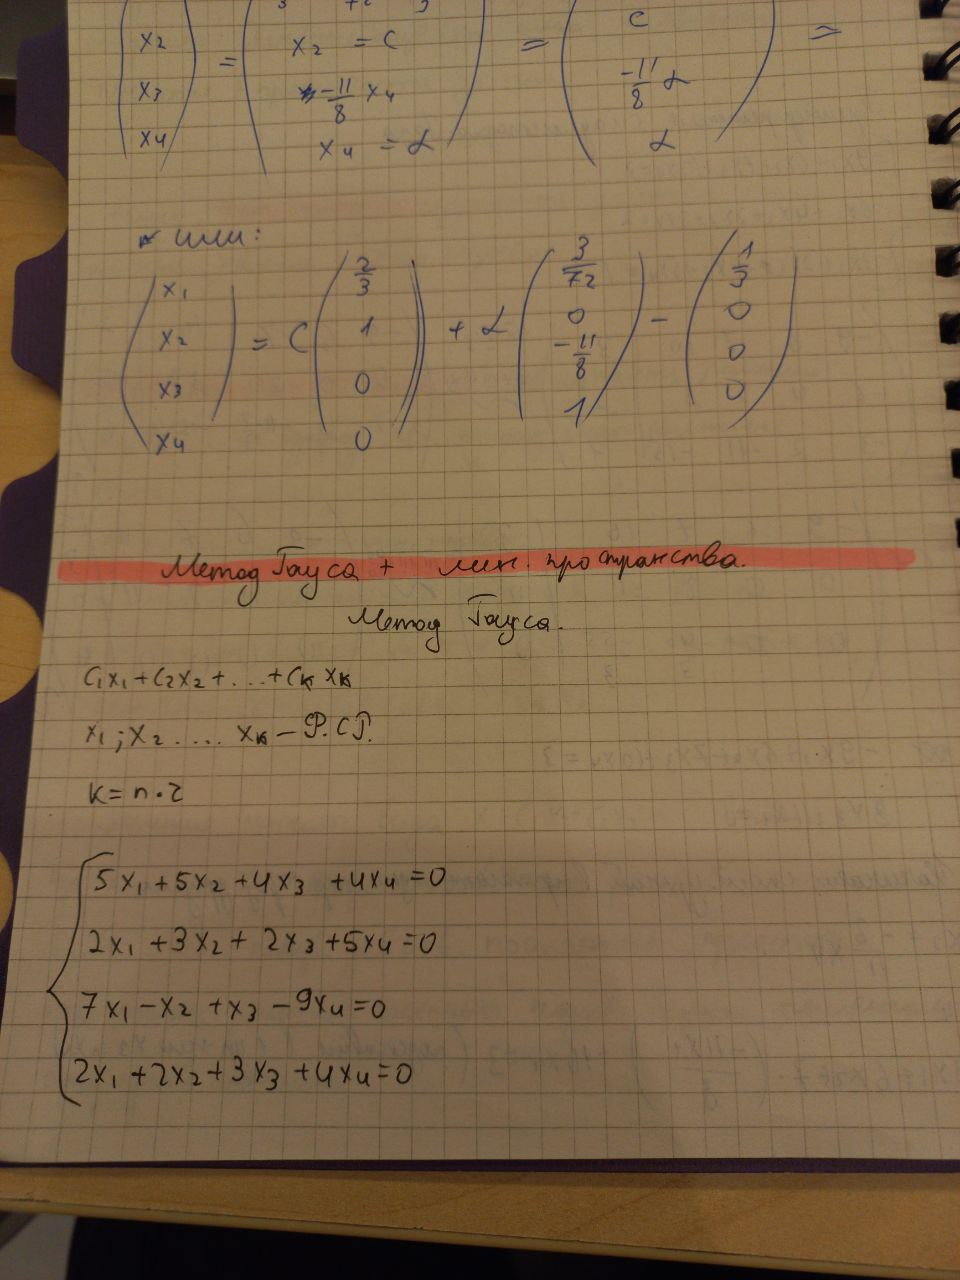 x2 = x2 = C = C =
x3 -11/8 x4 -11/8 α
x4 x4 = α α
или:
x1 2/3 3/72 1/3
x2 = C 1 + α 0 - 0
x3 0 -11/8 0
x4 0 1 0
Метод Гауса + лин. пространства.
Метод Гауса.
C1x1+C2x2+...+Ck xk
x1; x2 .... xk – Ф.С.Р.
k = n · r
5x1+5x2+4x3+4x4=0
2x1+3x2+2x3+5x4=0
7x1-x2+x3-9x4=0
2x1+2x2+3x3+4x4=0